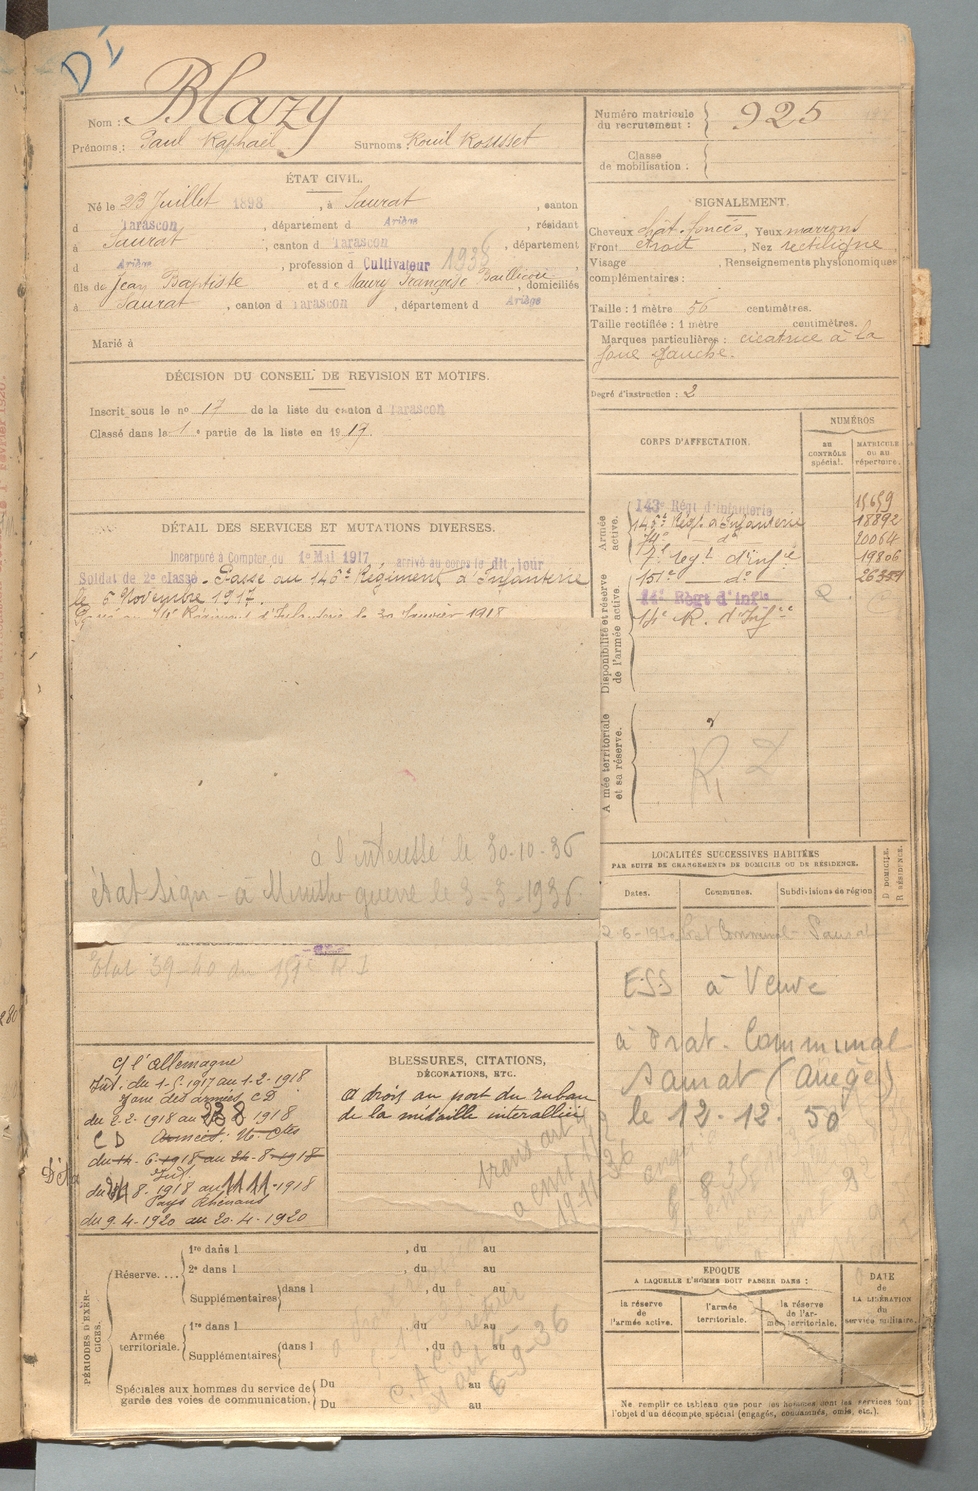 DI
Nom : Blazy
Prénoms : Paul Raphaël Surnoms Rouil Rousset
Numéro matricule du recrutement : 925
Classe de mobilisation :
ÉTAT CIVIL.
Né le 23 Juillet 1898, à Saurat, canton
d Tarascon, département d Ariège, résidant
à Saurat, canton d Tarascon, département
d Ariège, profession d Cultivateur 1938
fils de Jean Baptiste et de Maury Françoise, domiciliés
à Saurat, canton d Tarascon, département d Ariège
Marié à
SIGNALEMENT.
Cheveux chât. foncés, Yeux marrons
Front droit, Nez rectiligne
Visage , Renseignements physionomiques
complémentaires :
Taille : 1 mètre 56 centimètres.
Taille rectifiée : 1 mètre centimètres.
Marques particulières : cicatrice à la
joue gauche.
Degré d'instruction : 2
DÉCISION DU CONSEIL DE REVISION ET MOTIFS.
Inscrit sous le no 17 de la liste du canton d Tarascon
Classé dans la 1e partie de la liste en 1917.
CORPS D'AFFECTATION.
NUMÉROS
au CONTRÔLE spécial.
MATRICULE OU AU répertoire.
Armée active.
143e Régt d'Infanterie 15659
146e Régt d'Infanterie 18892
74e do 20064
7e Regt d'infie 19806
151e do 26351
Disponibilité et réserve de l'armée active.
14e Régt d'Infie 2
14e R. d'Infie
Armée territoriale et sa réserve.
DÉTAIL DES SERVICES ET MUTATIONS DIVERSES.
Incorporé à Compter du 1er Mai 1917 arrivé au corps le dit jour
Soldat de 2e classe. Passé au 146e Régiment d'Infanterie
le 5 Novembre 1917.
Régiment d'Infanterie le 30 Janvier 1918
à l'intéressé le 30-10-36
état sign - à Ministre guerre le 3-3-1936
Etat 39-40 du 151e R.I
LOCALITÉS SUCCESSIVES HABITÉES
PAR SUITE DE CHANGEMENTS DE DOMICILE OU DE RÉSIDENCE.
Dates. Communes. Subdivisions de région
D DOMICILE. R RÉSIDENCE.
Prat Communal - Saurat
ESS à Veuve
à Prat. Communal
Saurat (Ariège)
le 12.12.50
C/ l'Allemagne
Int. du 1-5-1917 au 1-2-1918
Zone des armées CD
du 2-2-1918 au 23 8 1918
CD
Int.
du 24 8 1918 au 11 11-1918
Pays Rhénans
du 9.4-1920 au 20.4-1920
BLESSURES, CITATIONS,
DÉCORATIONS, ETC.
A droit au port du ruban
de la médaille interalliée
19-11-36
PÉRIODES D'EXERCICES.
Réserve....
1re dans l , du au
2e dans l , du au
Supplémentaires dans l , du au
Armée territoriale.
1re dans l , du au
Supplémentaires dans l , du au
Spéciales aux hommes du service de garde des voies de communication.
Du au
Du au
6-9-36
EPOQUE
A LAQUELLE L'HOMME DOIT PASSER DANS :
la réserve de l'armée active.
l'armée territoriale.
la réserve de l'armée territoriale.
DATE de LA LIBÉRATION du service militaire.
Ne remplir ce tableau que pour les hommes dont les services font
l'objet d'un décompte spécial (engagés, condamnés, omis, etc.).